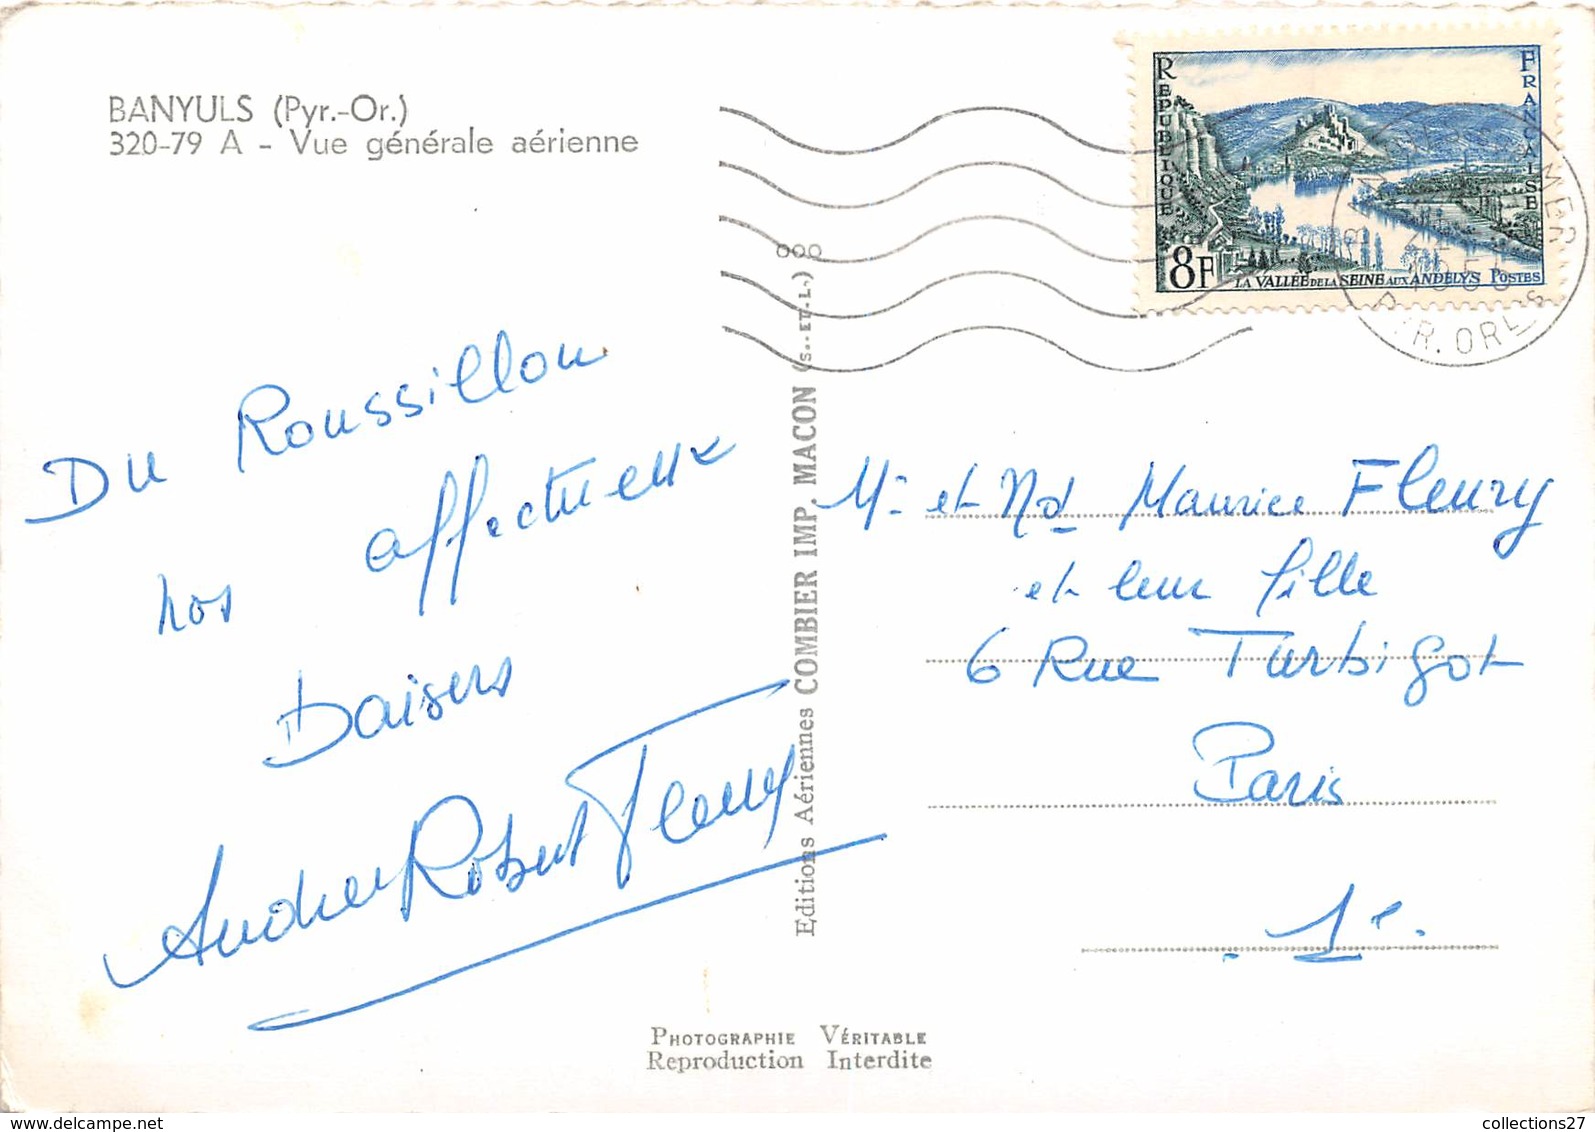 BANYULS (Pyr.-Or.)
320-79 A - Vue générale aérienne
RÉPUBLIQUE
FRANÇAISE
8F
LA VALLÉE DE LA SEINE AUX ANDELYS POSTES
MER
PYR. ORLES
Du Roussillon
nos affectueux
Baisers
Andrée Robert Fleury
Editions Aériennes COMBIER IMP. MACON (S.-ET-L.) ooo
Mr et Md Maurice Fleury
et leur fille
6 Rue Turbigot
Paris
1e.
PHOTOGRAPHIE VÉRITABLE
Reproduction Interdite
collections27